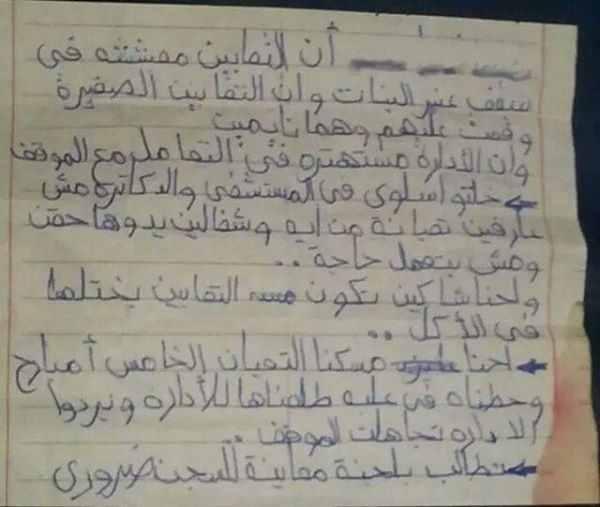 أن الثعابين معششه في
سقف عنبر البنات وان الثعابين الصغيرة
وقعت عليهم وهما نايمين
وان الأداره مستهتره في التعامل مع الموقف
خالتو اسلوى في المستشفى والدكاتره مش
عارفين تعبانة من ايه وشغالين يدوها حقن
ومش بتعمل حاجة ..
ولحنا شاكين تكون مسه الثعابين بختلها
في الأكل ..
احنا مسكنا الثعبان الخامس أمباح
وحطناه في علبه طلعناها للأداره وبردوا
الاداره تجاهلت الموقف ..
نطالب بلجنة معاينة للسجن ضرورى